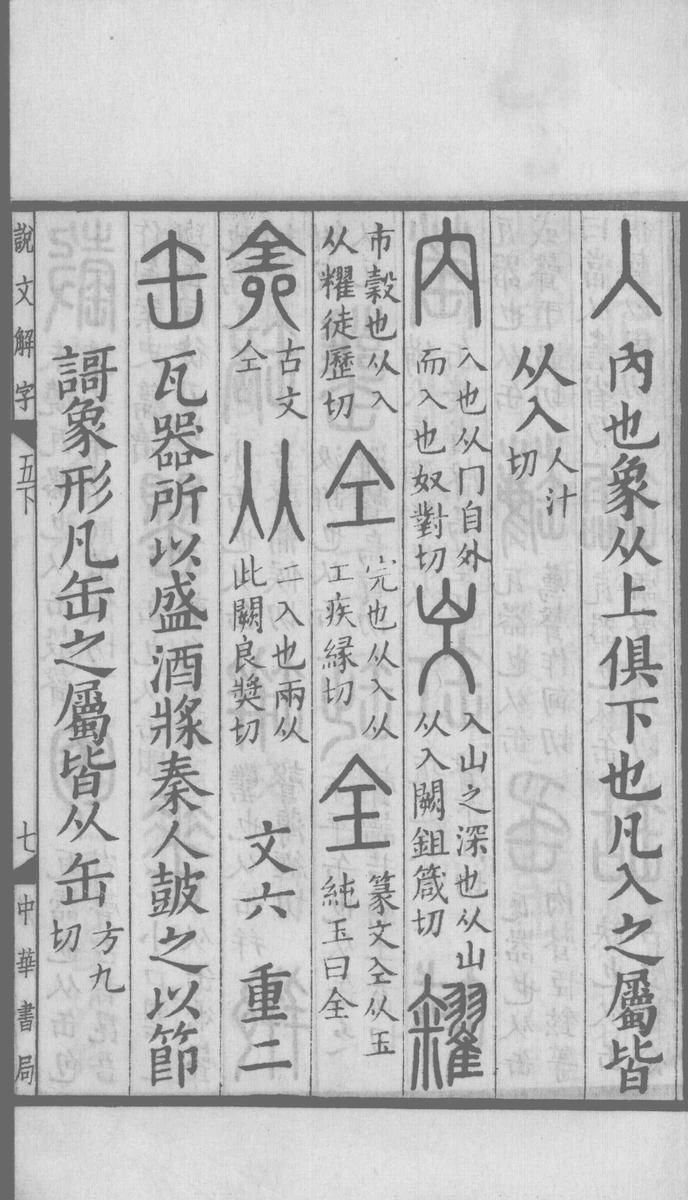 入內也象从上俱下也凡入之屬皆
从入人汁切
內入也从冂自外而入也奴對切㞥入山之深也从山从入闕鉏箴切糴
市穀也从入从䊮徒歷切仝完也从入从工疾緣切全篆文仝从玉純玉曰全
𠓴古文仝㒳二入也兩从此闕良獎切文六重二
缶瓦器所以盛酒漿秦人鼓之以節
謌象形凡缶之屬皆从缶方九切
說文解字 五下 七 中華書局